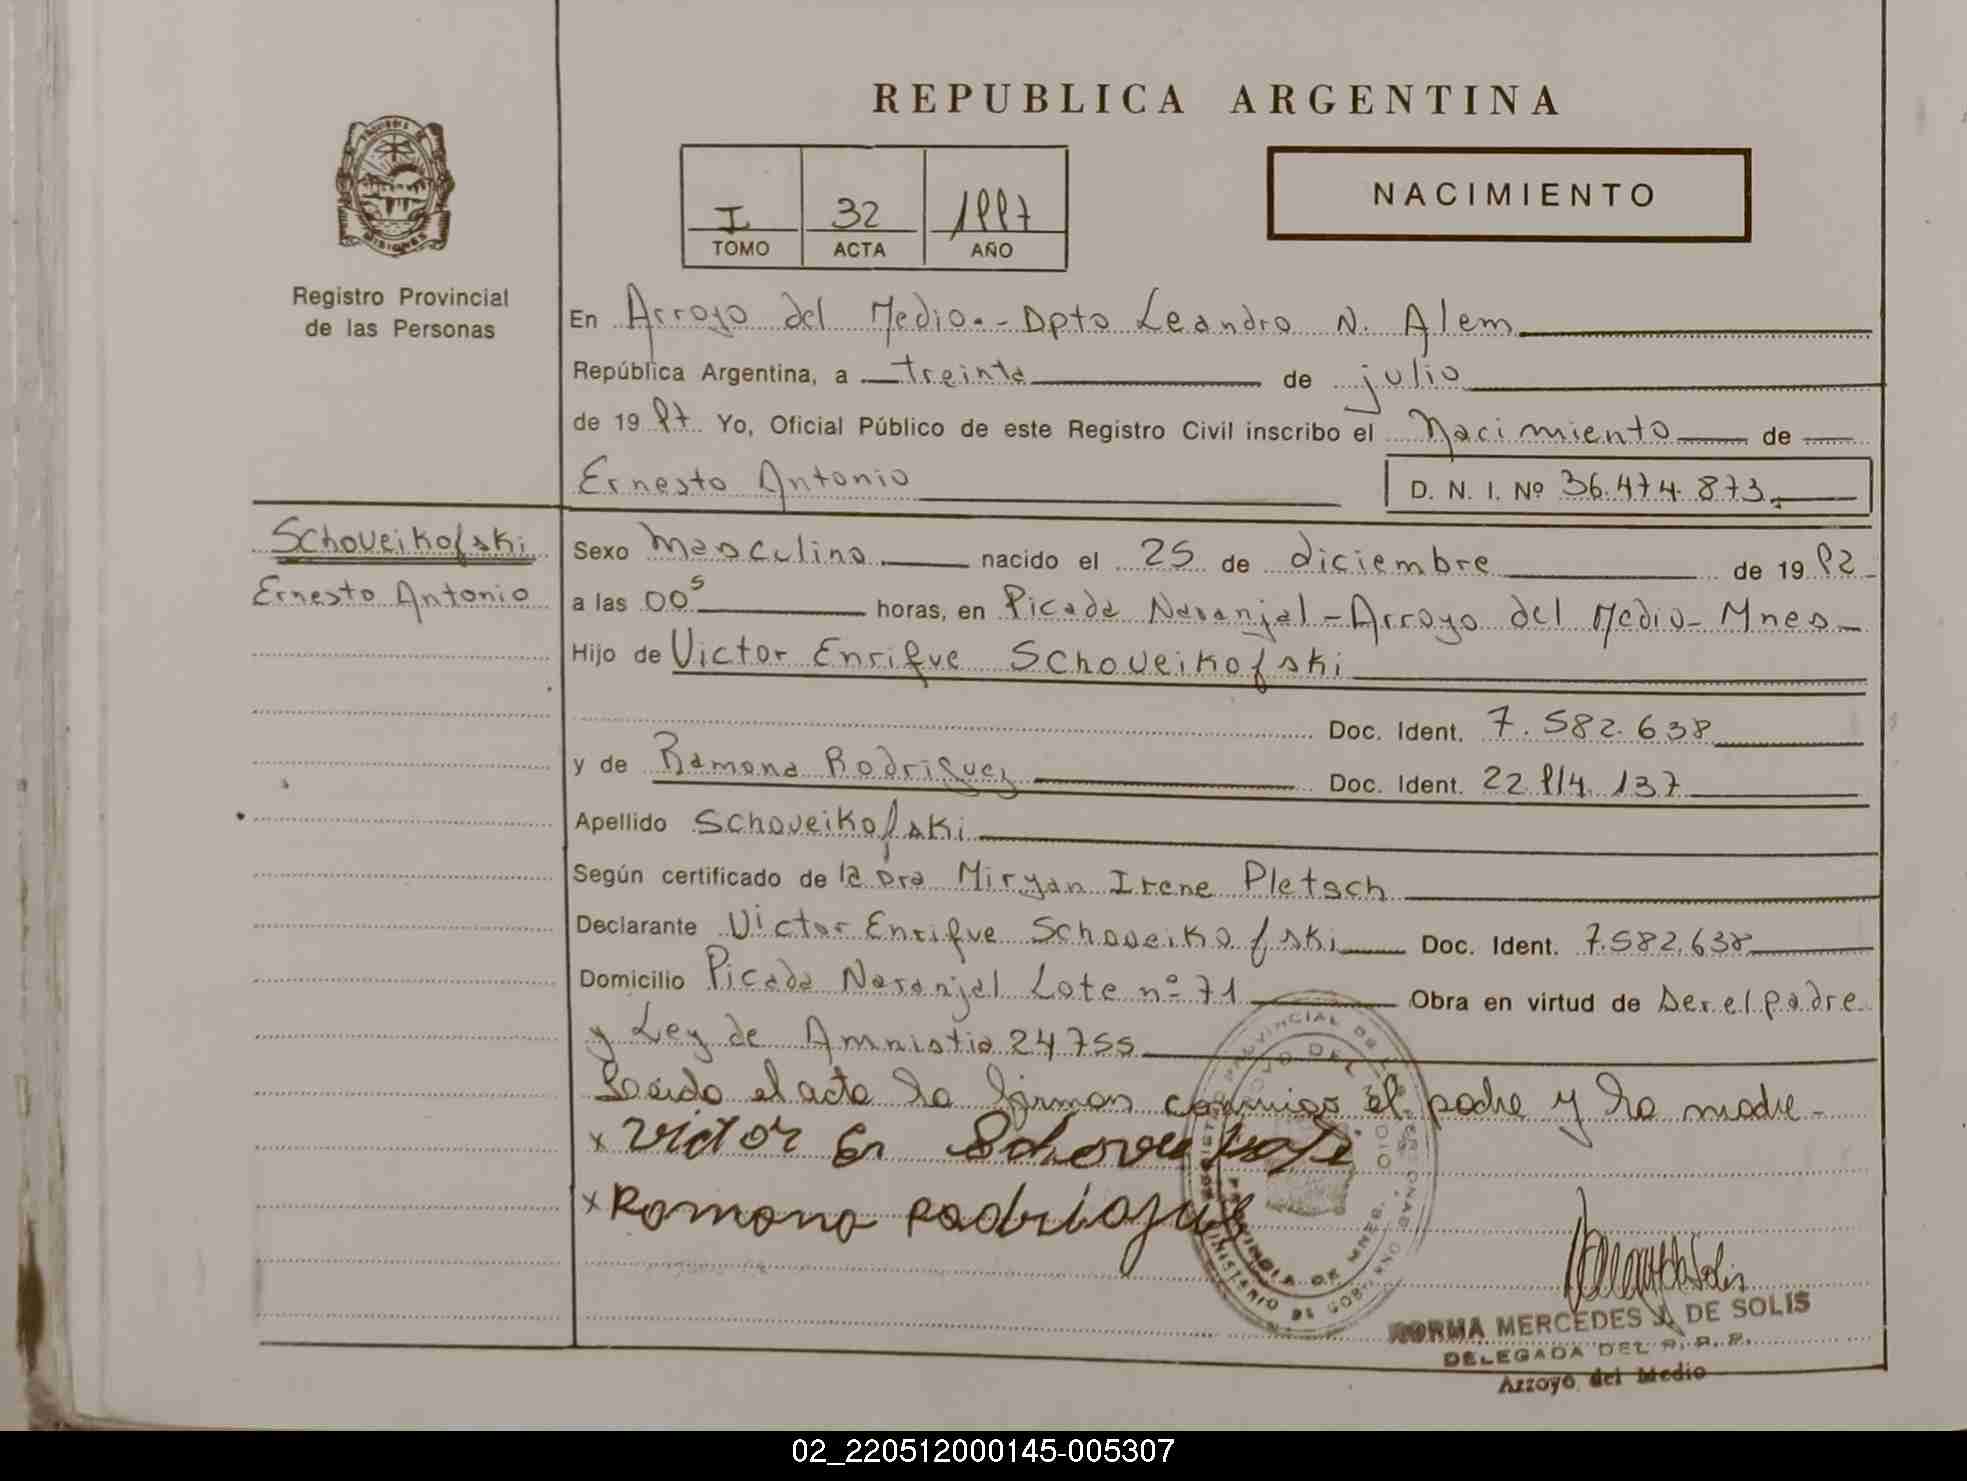 REPUBLICA ARGENTINA
PROVINCIA DE
MISIONES
Registro Provincial
de las Personas
I
TOMO
32
ACTA
1997
AÑO
NACIMIENTO
En Arroyo del Medio.- Dpto Leandro N. Alem
República Argentina, a treinta de julio
de 1997 Yo, Oficial Público de este Registro Civil inscribo el Nacimiento de
Ernesto Antonio D. N. I. Nº 36.474.873
Schoveikofski
Ernesto Antonio
Sexo Masculino nacido el 25 de diciembre de 1992
a las 00s horas, en Picada Naranjal - Arroyo del Medio - Mnes -
Hijo de Victor Enrique Schoveikofski
Doc. Ident. 7.582.638
y de Ramona Rodriguez Doc. Ident. 22.914.137
Apellido Schoveikofski
Según certificado de la Dra Miryan Irene Pletsch
Declarante Victor Enrique Schoveikofski Doc. Ident. 7.582.638
Domicilio Picada Naranjal Lote nº 71 Obra en virtud de ser el padre
y Ley de Amnistia 24755
Leido el acta la firman conmigo el padre y la madre -
x Victor En
x Ramona
REGISTRO PROVINCIAL DE LAS PERSONAS
ARROYO DEL MEDIO
PROVINCIA DE MNES.
MINISTERIO DE GOBIERNO
NORMA MERCEDES J. DE SOLIS
DELEGADA DEL R. P. P.
Arroyo del Medio
02_220512000145-005307